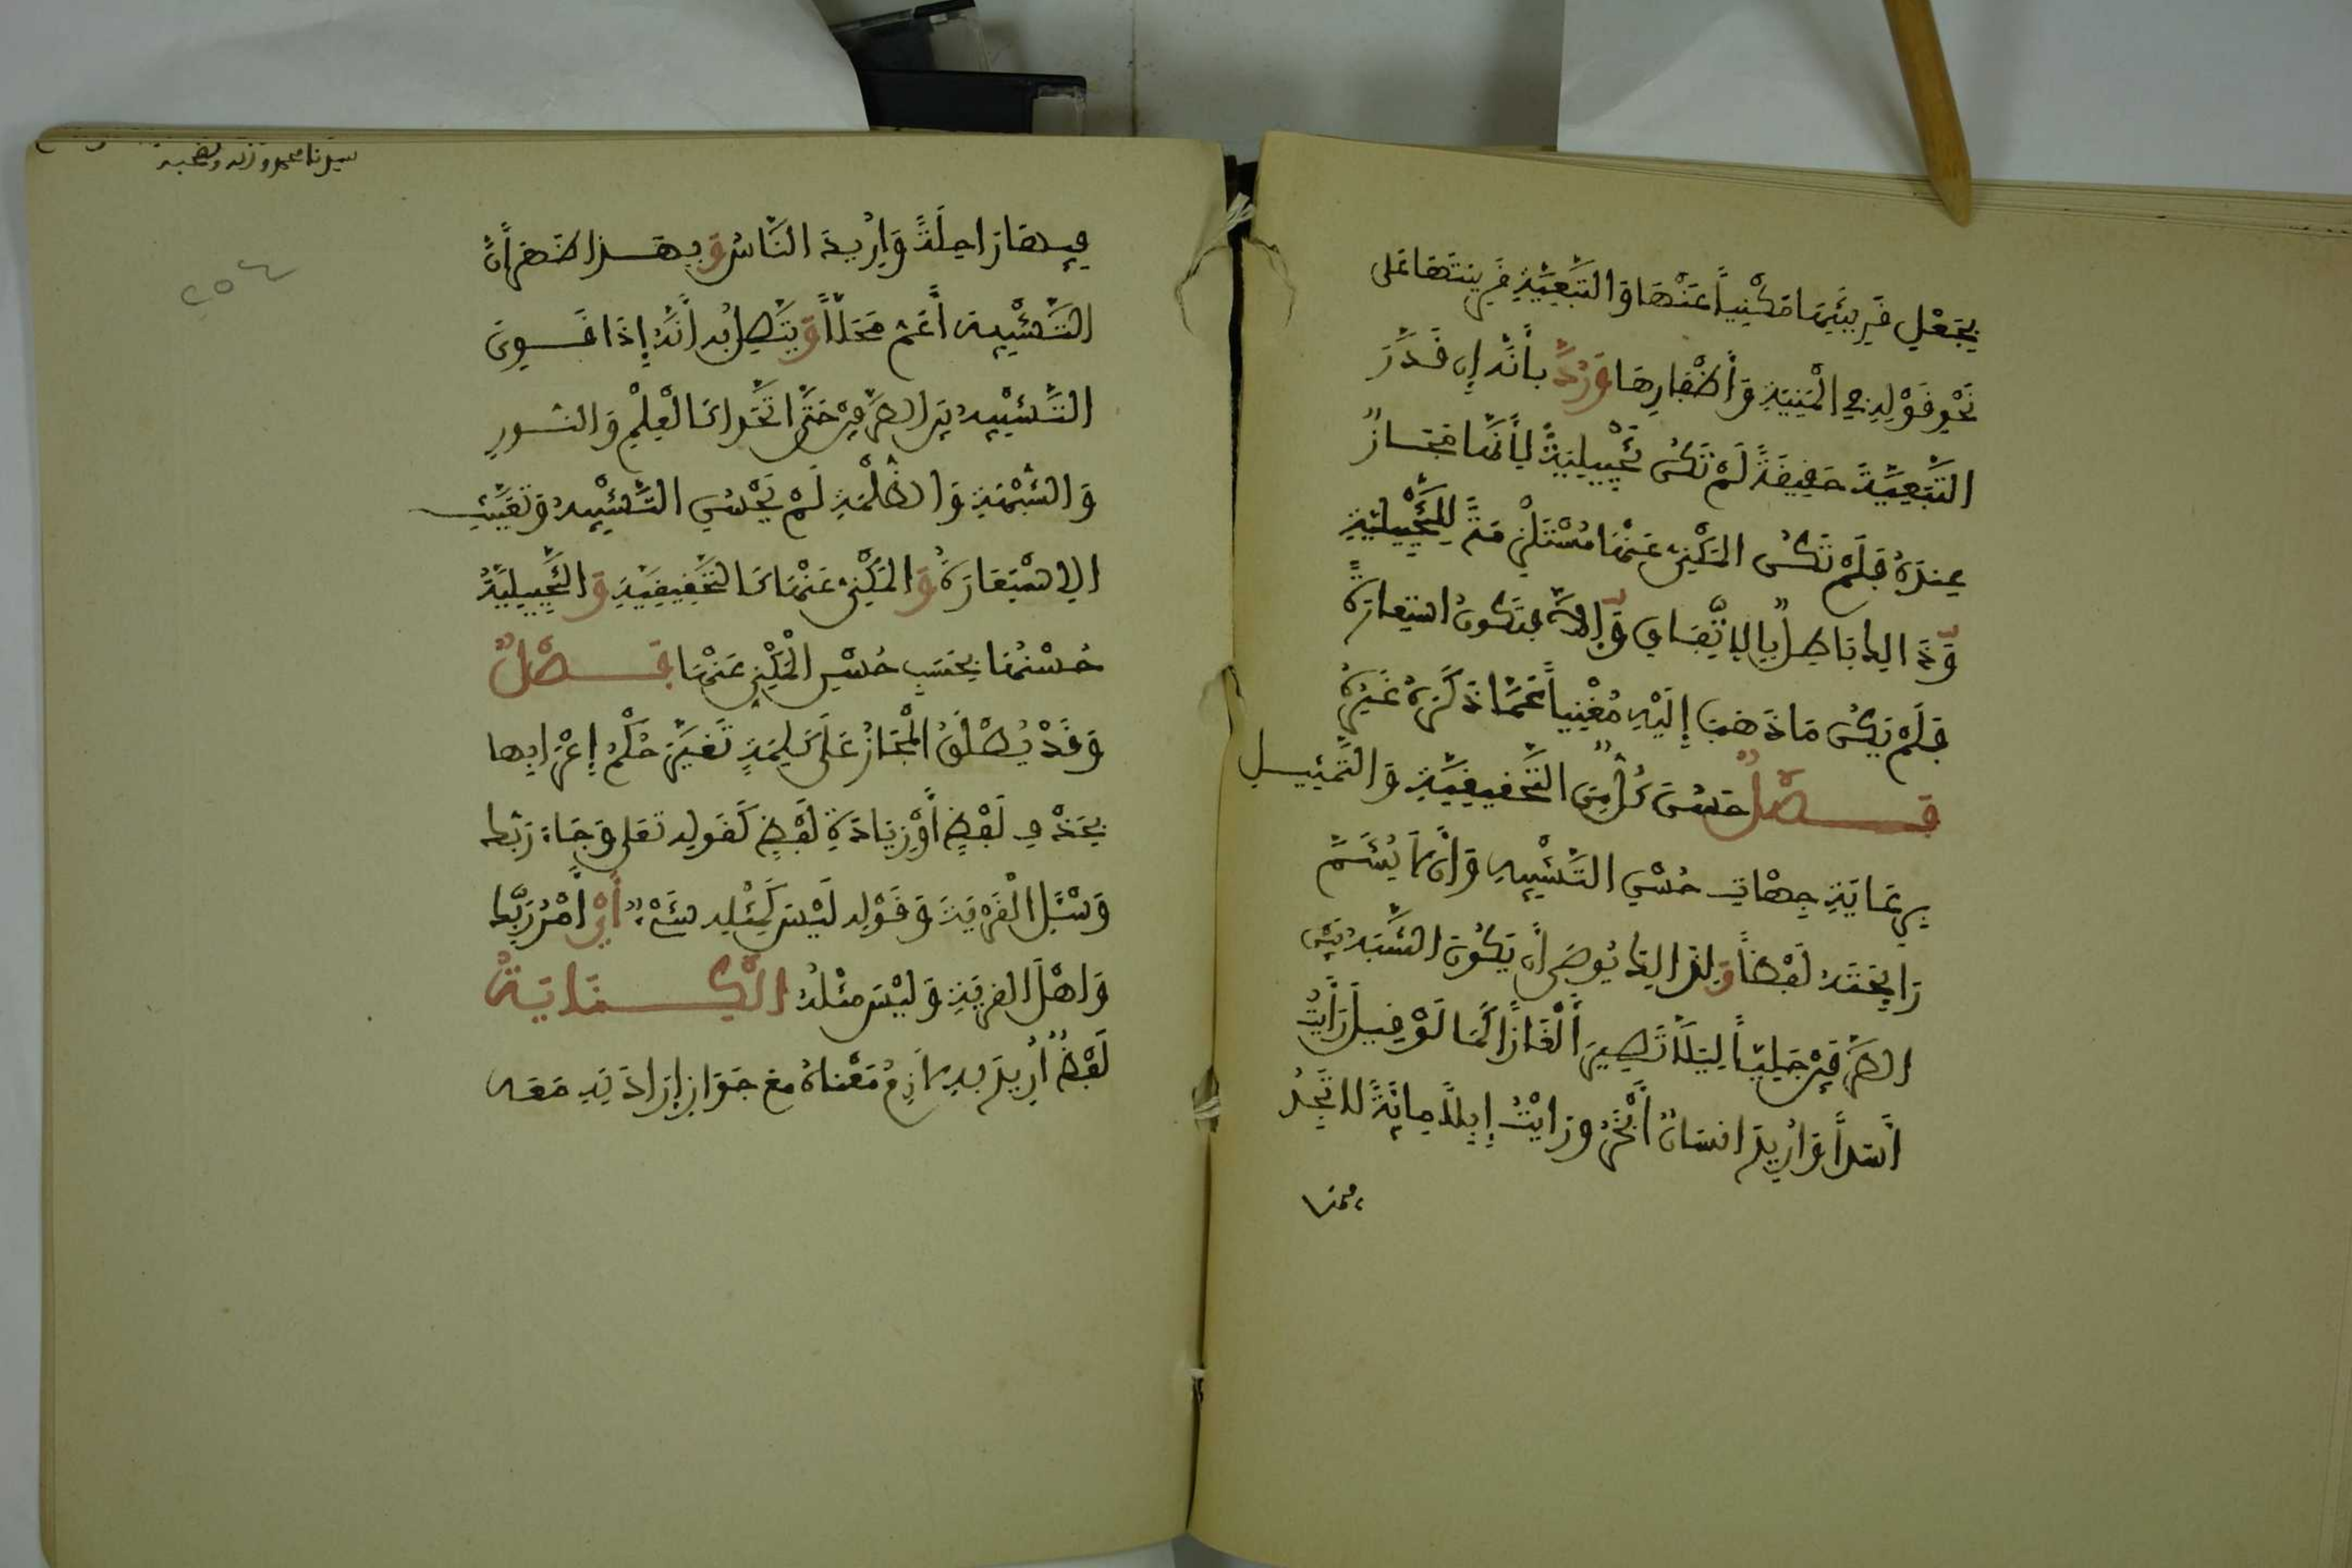 يجعل قرينتها مكنيا عنها والتبعية قرينتها على
نحو قوله في المنية وأظفارها ورد بأنه إن قدر
التبعية حقيقة لم تكن تخييلية لأنها مجاز
عنده فلم تكن المكنى عنها مستلزمة للتخييلية
وذلك باطل بالاتفاق وإلا فتكون استعارة
فلم يكن ما ذهب إليه مغنيا عما ذكره غيره
فصل حسن كل من التحقيقية والتمثيل
برعاية جهات حسن التشبيه وأن لا يشم
رائحته لفظا ولذلك يوصى أن يكون الشبه بين
الطرفين جليا ليلا تصير ألغازا كما لو قيل رأيت
أسدا وأريد انسان أبخر ورأيت إبلا مائة لا تجد
فيها راحلة وأريد الناس وبهذا ظهر أن
التشبيه أعم محلا ويتصل به أنه إذا قوي
التشبيه بين الطرفين حتى اتحدا كالعلم والنور
والشبهة والظلمة لم يحسن التشبيه وتعينت
الاستعارة والمكنى عنها كالتحقيقية والتخييلية
حسنها بحسب حسن المكنى عنها فصل
وقد يطلق المجاز على كلمة تغير حكم إعرابها
بحذف لفظ أو زيادة لفظ كقوله تعلى وجاء ربك
وسئل القرية وقوله ليس كمثله شيء أي أمر ربك
وأهل القرية وليس مثله الكناية
لفظ أريد به لازم معناه مع جواز إرادته معه
٢٥٤